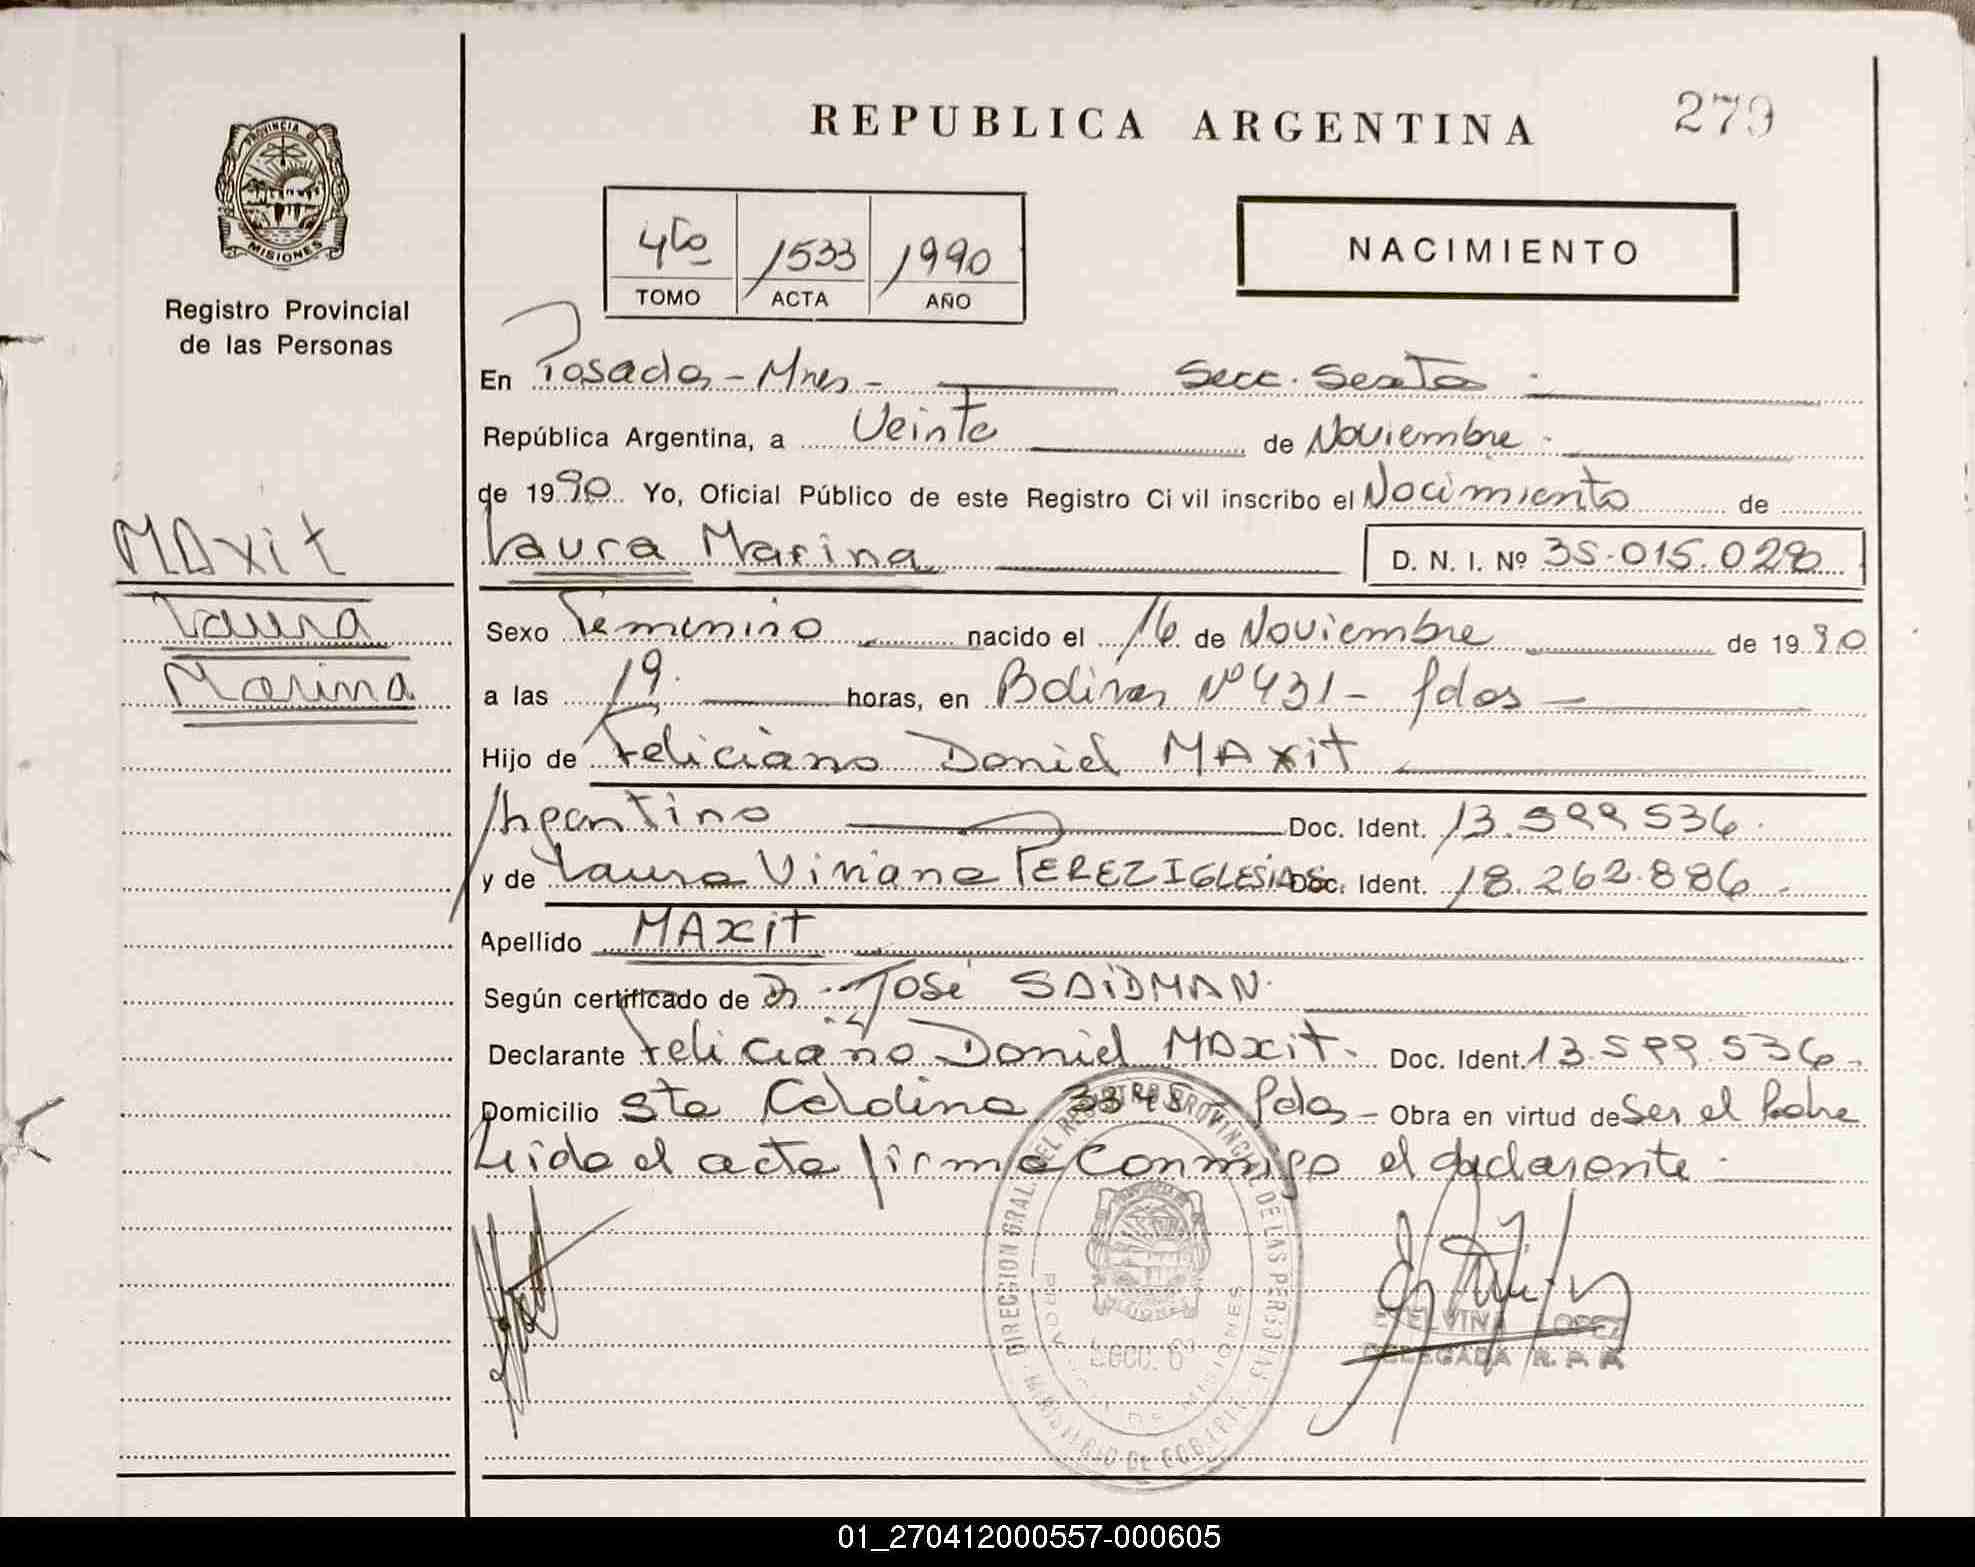 REPUBLICA ARGENTINA
279
PROVINCIA DE
MISIONES
Registro Provincial
de las Personas
4to 1533 1990
TOMO ACTA AÑO
NACIMIENTO
En Posadas - Mnes - Secc. Sexta
República Argentina, a Veinte de Noviembre
de 1990 Yo, Oficial Público de este Registro Civil inscribo el Nacimiento de
Laura Marina D. N. I. Nº 35.015.028
MAxit
Laura
Marina
Sexo Femenino nacido el 16 de Noviembre de 1990
a las 19 horas, en Bolivar Nº 431 - Pdas -
Hijo de Feliciano Daniel MAxit
Argentino Doc. Ident. 13.599.536
y de Laura Viviana PEREZ IGLESIAS Doc. Ident. 18.262.886
Apellido MAxit
Según certificado de Dr. José SAIDMAN
Declarante Feliciano Daniel MAxit Doc. Ident. 13.599.536
Domicilio Sta 3348 Pdas - Obra en virtud de Ser el Padre
Leida el acta firma conmigo el declarante
DIRECCION GRAL. DEL REGISTRO PROVINCIAL DE LAS PERSONAS
MINISTERIO DE GOBIERNO
PROVINCIA DE MISIONES
SECC. 6ª
LOPEZ
DELEGADA R. P. P.
01_270412000557-000605